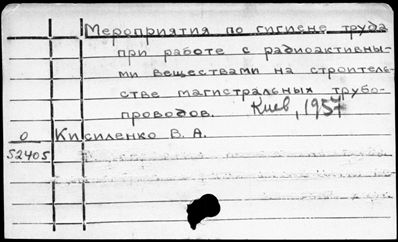 Мероприятия по гигиене труда
при работе с радиоактивны-
ми веществами на строитель-
стве магистральных трубо-
проводов. Киев, 1957
0 Кисиленко В. А.
52405